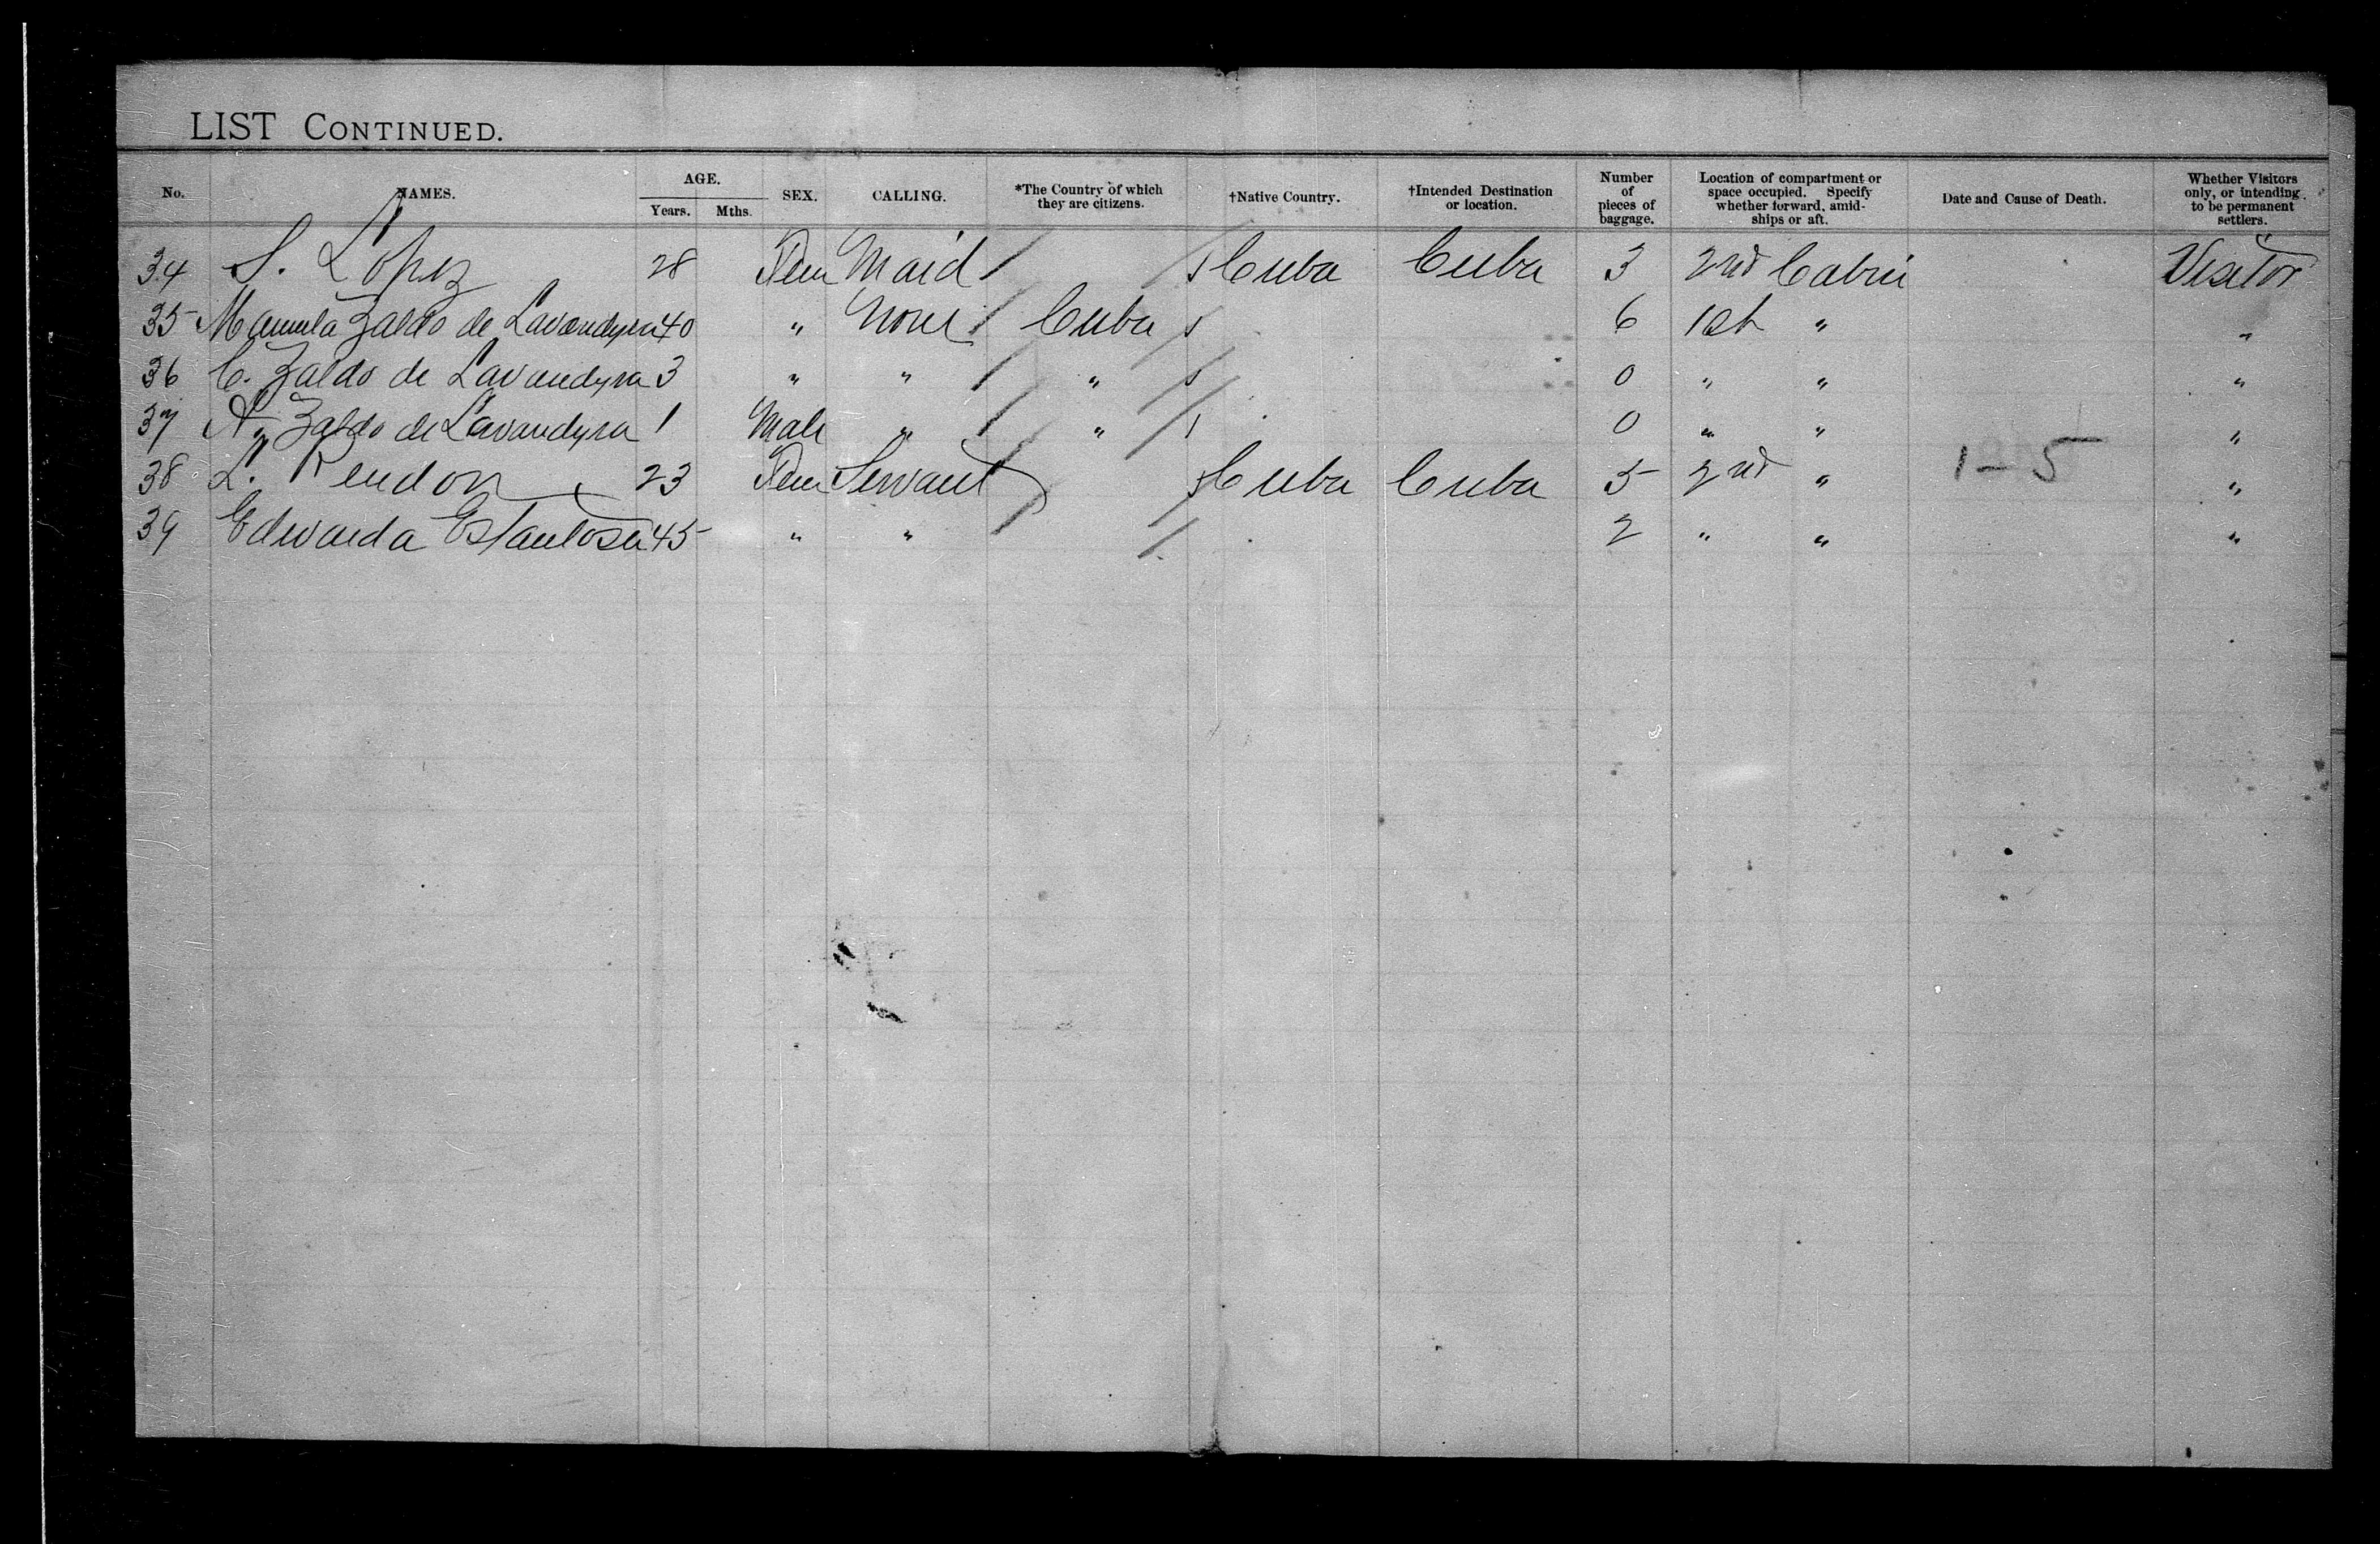 LIST CONTINUED.
No. NAMES. AGE. Years. Mths. SEX. CALLING. *The Country of which they are citizens. †Native Country. †Intended Destination or location. Number of pieces of baggage. Location of compartment or space occupied. Specify whether forward, amidships or aft. Date and Cause of Death. Whether Visitors only, or intending to be permanent settlers.
34 S. Lopez 28 Fem Maid Cuba Cuba 3 2nd Cabin Visitor
35 Manuela Zaldo de Lavandyra 40 " None Cuba 6 1st " "
36 C. Zaldo de Lavandyra 3 " " " 0 " " "
37 A. Zaldo de Lavandyra 1 Male " " 0 " " "
38 L. Rendon 23 Fem Servant Cuba Cuba 5 2nd " 1-5 "
39 Edwarda 45 " " 2 " " "